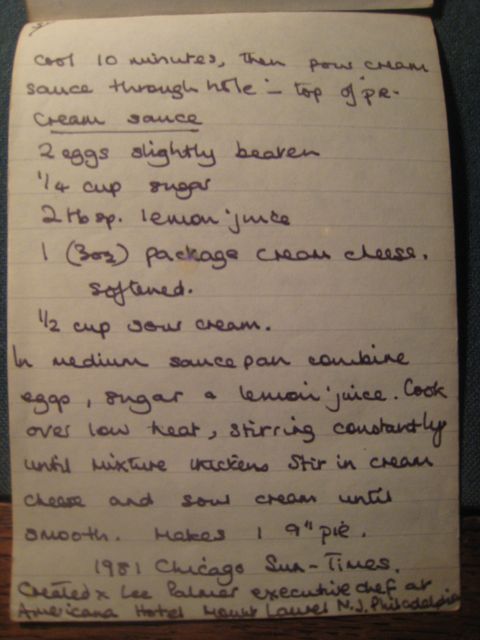 Cool 10 minutes, then pour cream
sauce through hole in top of pie.
Cream sauce
2 eggs slightly beaten
1/4 cup sugar
2 tbsp. lemon juice
1 (3oz) package cream cheese.
softened.
1/2 cup sour cream.
In medium saucepan combine
eggs, sugar & lemon juice. Cook
over low heat, stirring constantly
until mixture thickens Stir in cream
cheese and sour cream until
smooth. Makes 1 9" pie.
1981 Chicago Sun-Times.
Created x Lee Palmer executive chef at
Americana Hotel Mount Laurel N.J. Philadelphia